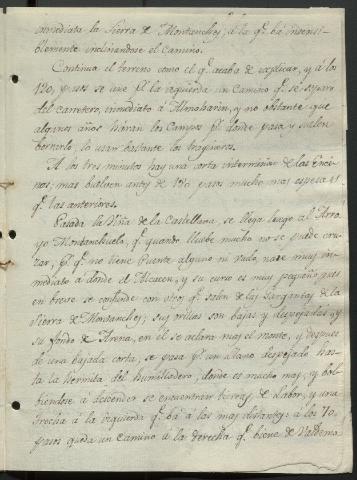 inmediata la Sierra de Montanchez, á la q.e bá insensi-
blemente inclinandose el Camino.
Continua el terreno como el q.e acaba de explicar, y á los
120, pasos se une p.r la izquierda un Camino q.e se separó
del carretero, inmediato á Almoharin, y no obstante que
algunos años Aran los Campos p.r donde pasa, y suelen
lo usan bastante los tragineros.
A los tres minutos hay una corta intermision de las Enci-
nas; mas buelven antes de 150 pasos mucho mas espesas
q.e las anteriores.
Pasada la Viña de la Castellana, se llega luego al Arro-
yo Montanchuelo, q.e quando llueve mucho no se puede cru-
zar, p.s q.e no tiene Puente alguno ni vado, nace muy in-
mediato á donde el Alcacen, y su curso es muy pequeño pues
en breve se confunde con otros q.e salen de las Gargantas de la
Sierra de Montanchez; sus orillas son bajas y despejadas, y
su fondo de Arena, en el se aclara mas el monte, y despues
de una bajada corta, se pasa p.r un llano despejado has-
ta la Hermita del Humilladero, donde es mucho mas, y bol-
biendose á descender se encuentran tierras de Labor, y una
trocha á la izquierda q.e bá á las mas distantes: á los 70,
pasos queda un camino á la derecha q.e biene de Valdemo